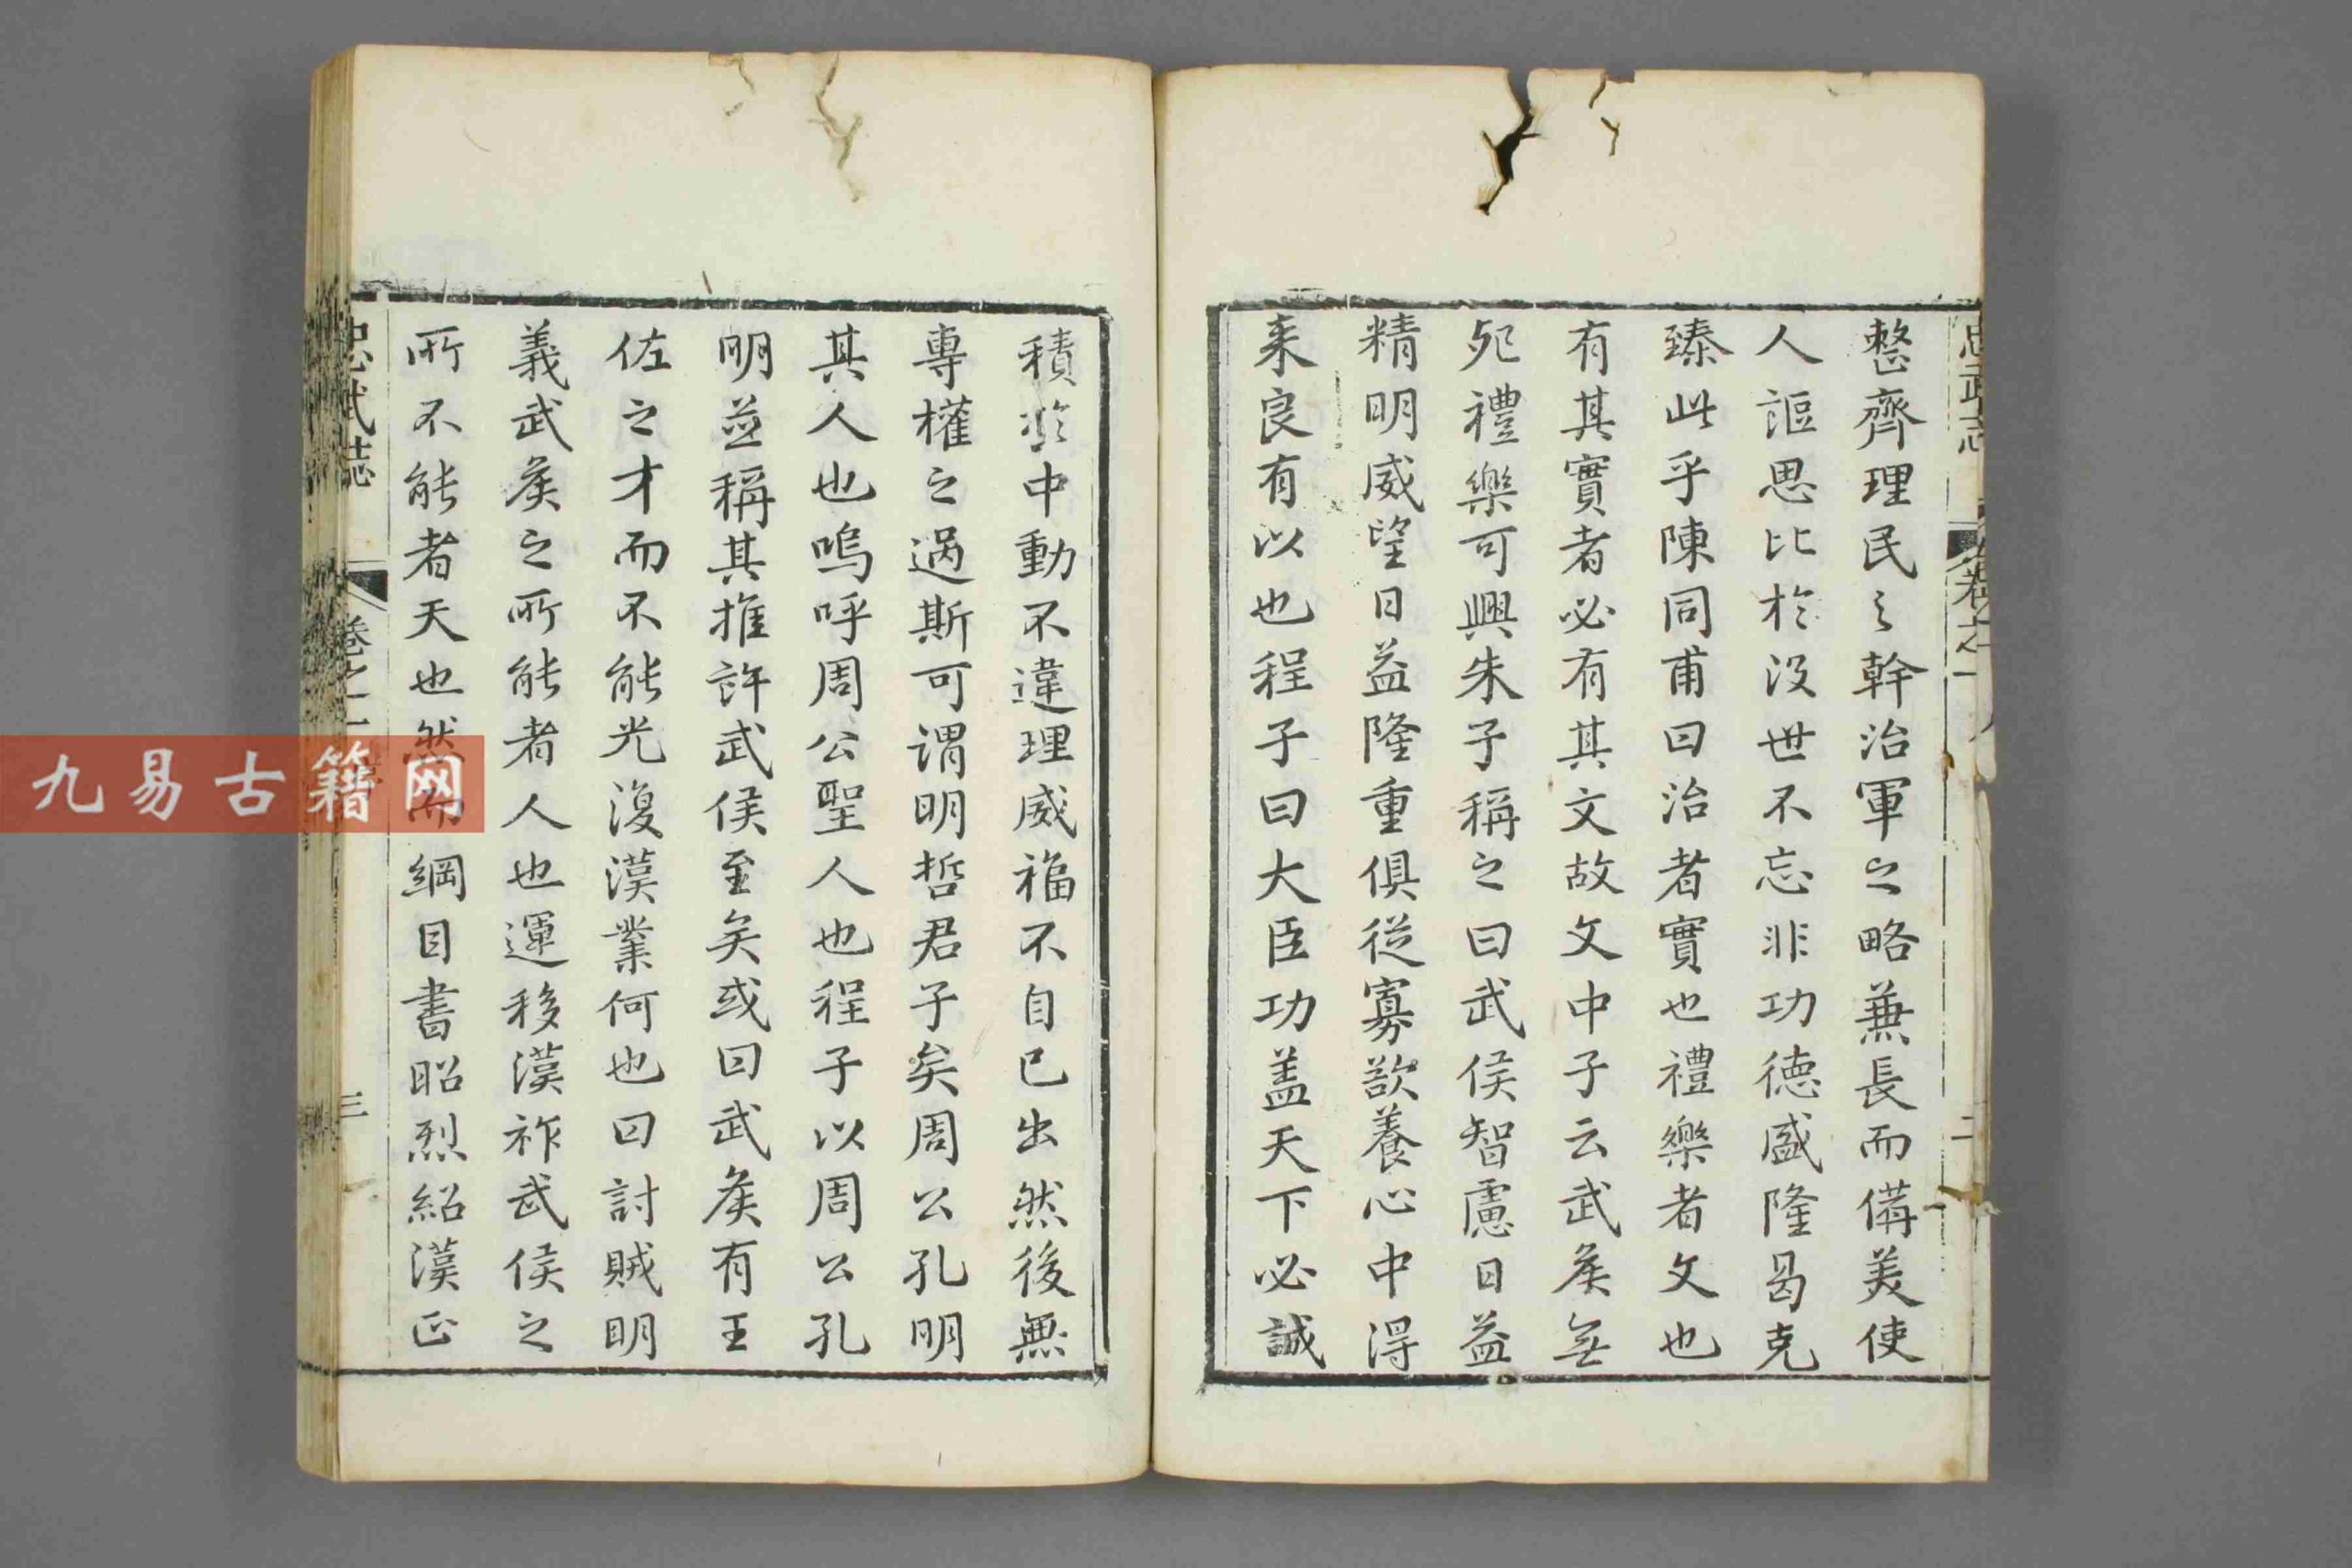 整齊理民之幹治軍之略兼長而備美使
人謳思比於沒世不忘非功德盛隆曷克
臻此乎陳同甫曰治者實也禮樂者文也
有其實者必有其文故文中子云武矦無
死禮樂可興朱子稱之曰武侯智慮日益
精明威望日益隆重俱從寡欲養心中得
来良有以也程子曰大臣功盖天下必誠
積於中動不違理威福不自己出然後無
專權之過斯可謂明哲君子矣周公孔明
其人也嗚呼周公聖人也程子以周公孔
明並稱其推許武侯至矣或曰武矦有王
佐之才而不能光復漢業何也曰討賊明
義武矦之所能者人也運移漢祚武侯之
所不能者天也然而綱目書昭烈紹漢正
忠武誌 卷之一 三
忠武志 卷之一 二
九易古籍网